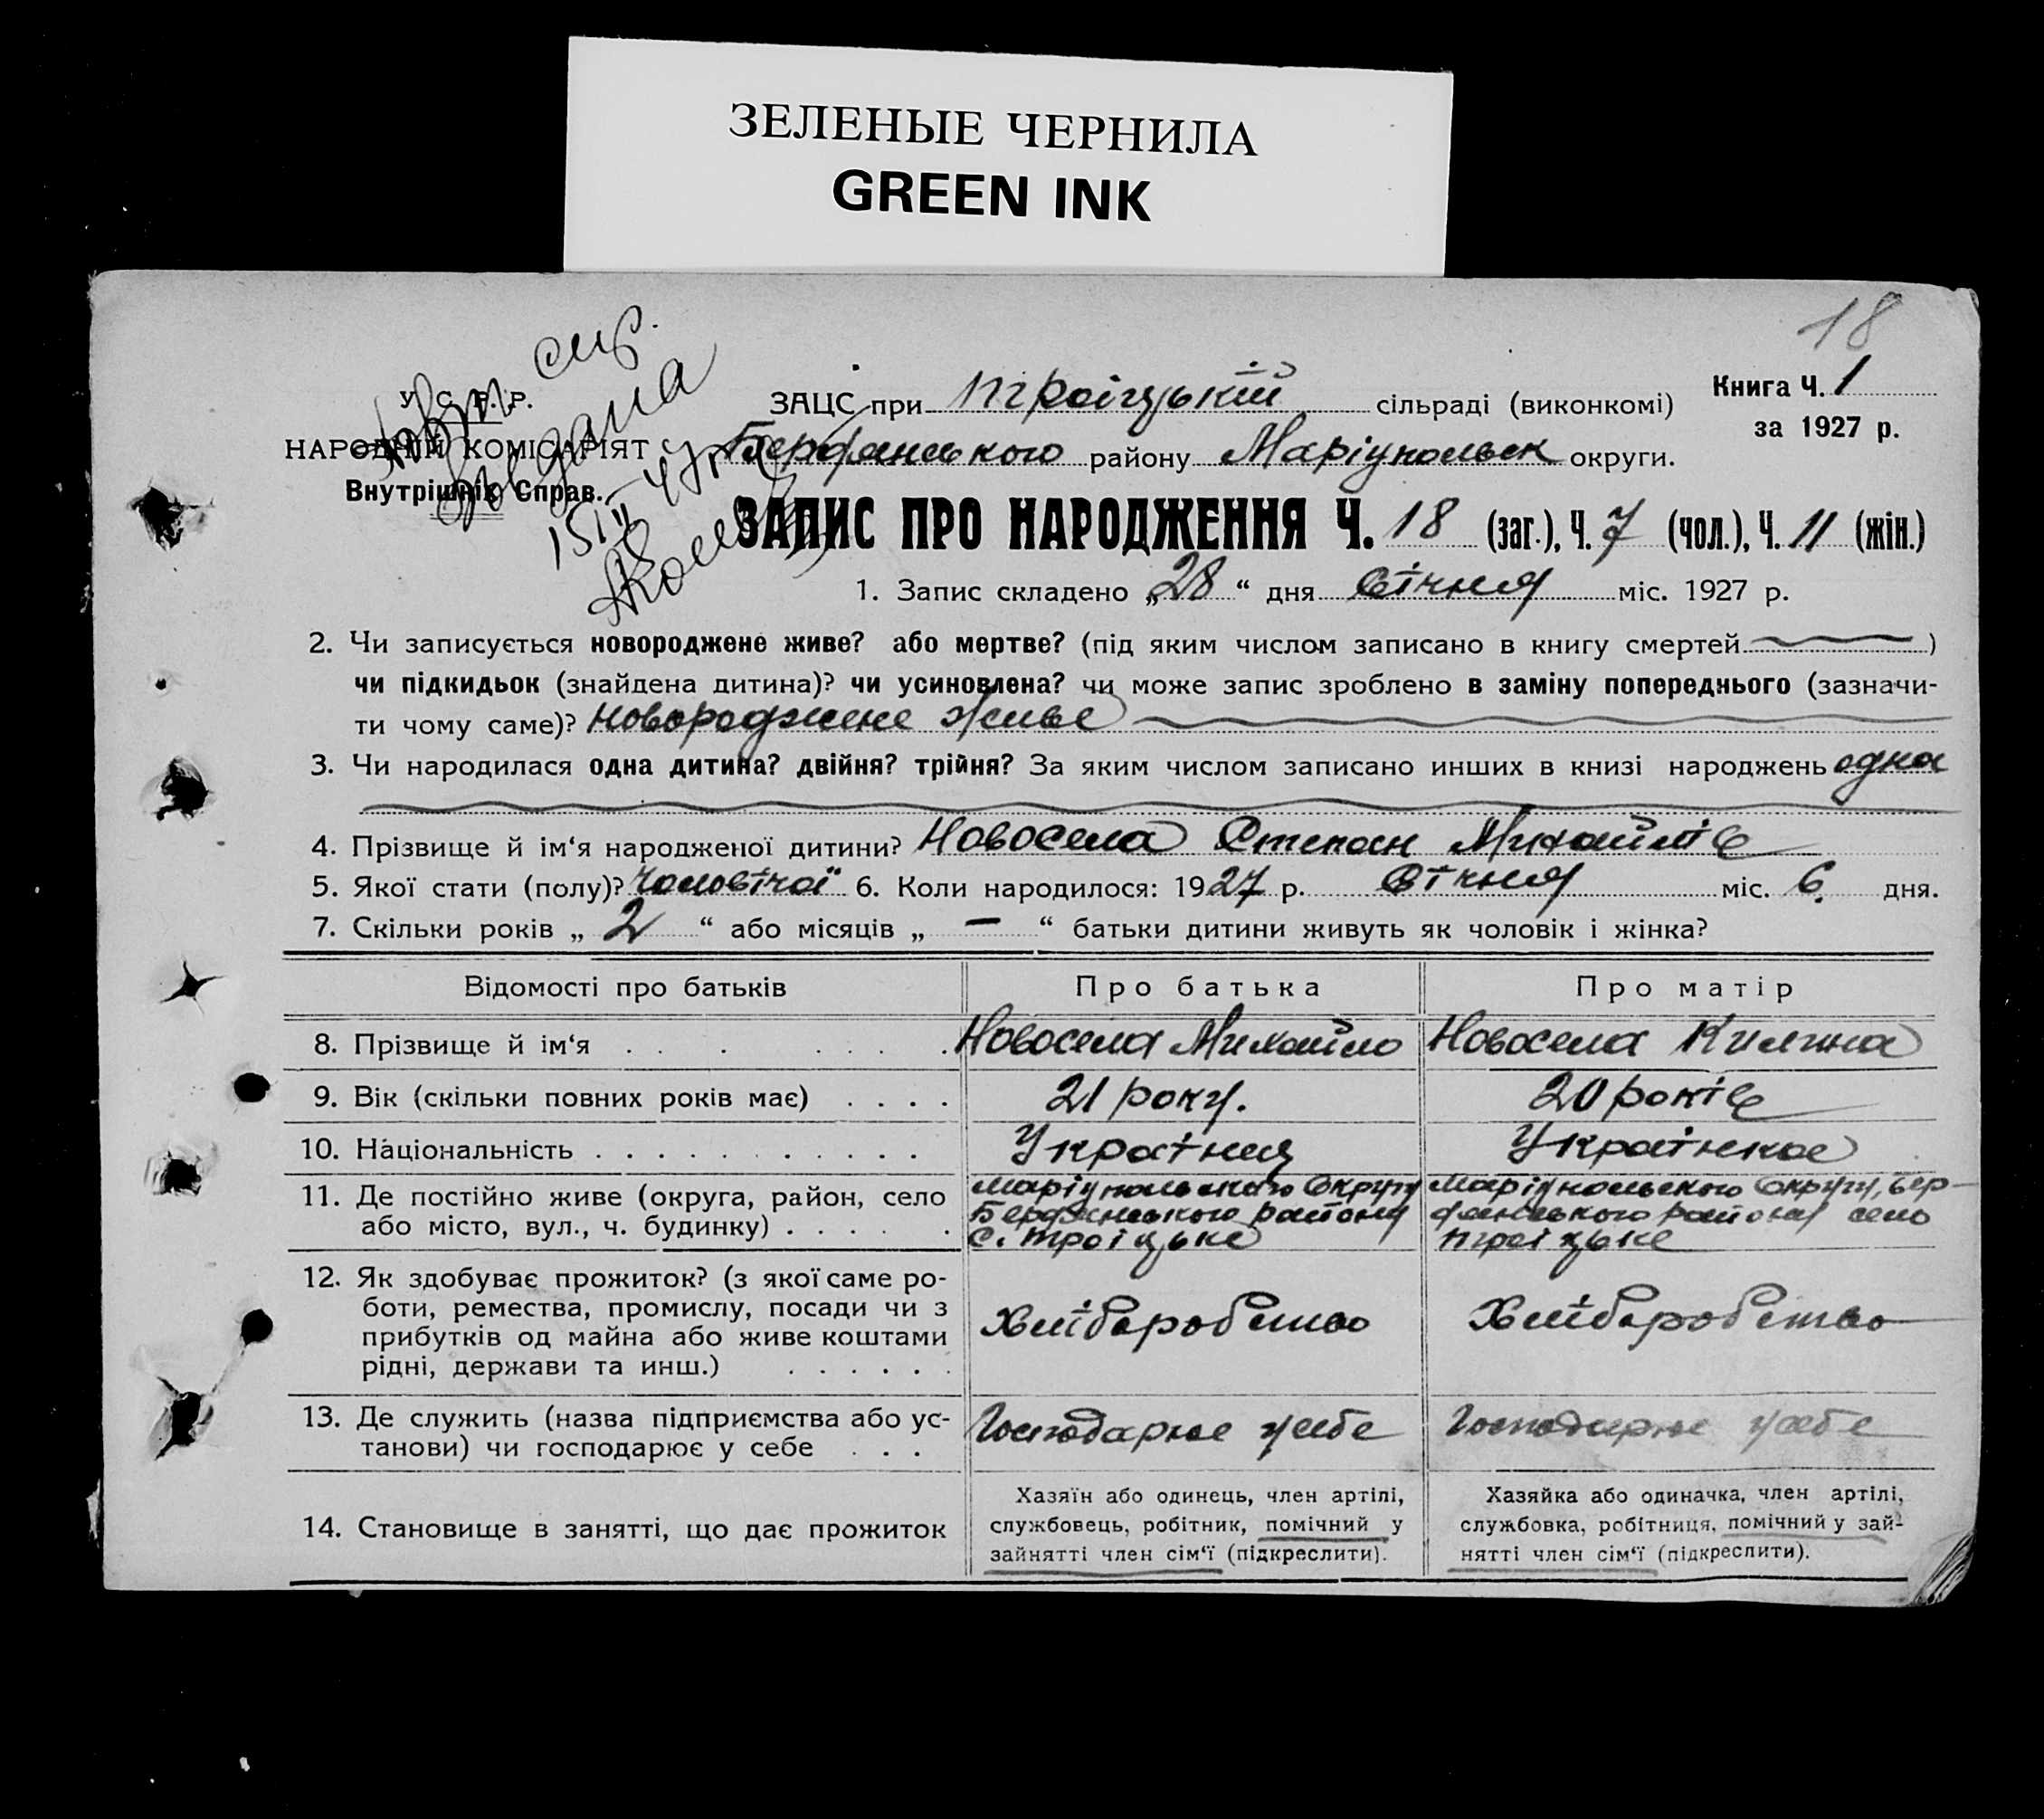 ЗЕЛЕНЫЕ ЧЕРНИЛА
GREEN INK
18
У. С. Р. Р.
НАРОДНІЙ КОМІСАРІЯТ
Внутрішніх Справ.
ЗАЦС при Троіцькій сільраді (виконкомі)
Бердянського району Маріупольськ округи.
Книга Ч. 1
за 1927 р.
ЗАПИС ПРО НАРОДЖЕННЯ Ч. 18 (заг.), Ч. 7 (чол.), Ч. 11 (жін.)
1. Запис складено „28“ дня січня міс. 1927 р.
2. Чи записується новороджене живе? або мертве? (під яким числом записано в книгу смертей )
чи підкидьок (знайдена дитина)? чи усиновлена? чи може запис зроблено в заміну попереднього (зазначи-
ти чому саме)? Новороджене живе
3. Чи народилася одна дитина? двійня? трійня? За яким числом записано инших в книзі народжень одна
4. Прізвище й ім‘я народженої дитини? Новосела Степан Михайлів
5. Якої стати (полу)? Чоловічої 6. Коли народилося: 1927 р. Січня міс. 6. дня.
7. Скільки років „ 2 “ або місяців „ — “ батьки дитини живуть як чоловік і жінка?
Відомості про батьків Про батька Про матір
8. Прізвище й ім‘я Новосела Михайло Новосела Килина
9. Вік (скільки повних років має) 21 року. 20 років
10. Національність Українця Українкое
11. Де постійно живе (округа, район, село Маріупольского Округу Маріупольского Округу, Бер-
або місто, вул., ч. будинку) Бердянського району дянського району село
с. Троіцьке Троіцьке
12. Як здобуває прожиток? (з якої саме ро-
боти, ремества, промислу, посади чи з Хліборобство Хліборобство
прибутків од майна або живе коштами
рідні, держави та инш.)
13. Де служить (назва підприємства або ус- Господарює усебе Господарює усебе
танови) чи господарює у себе
14. Становище в занятті, що дає прожиток
Хазяїн або одинець, член артілі,
службовець, робітник, помічний у
зайнятті член сім‘ї (підкреслити).
Хазяйка або одиначка, член артілі,
службовка, робітниця, помічний у зай-
нятті член сім‘ї (підкреслити).